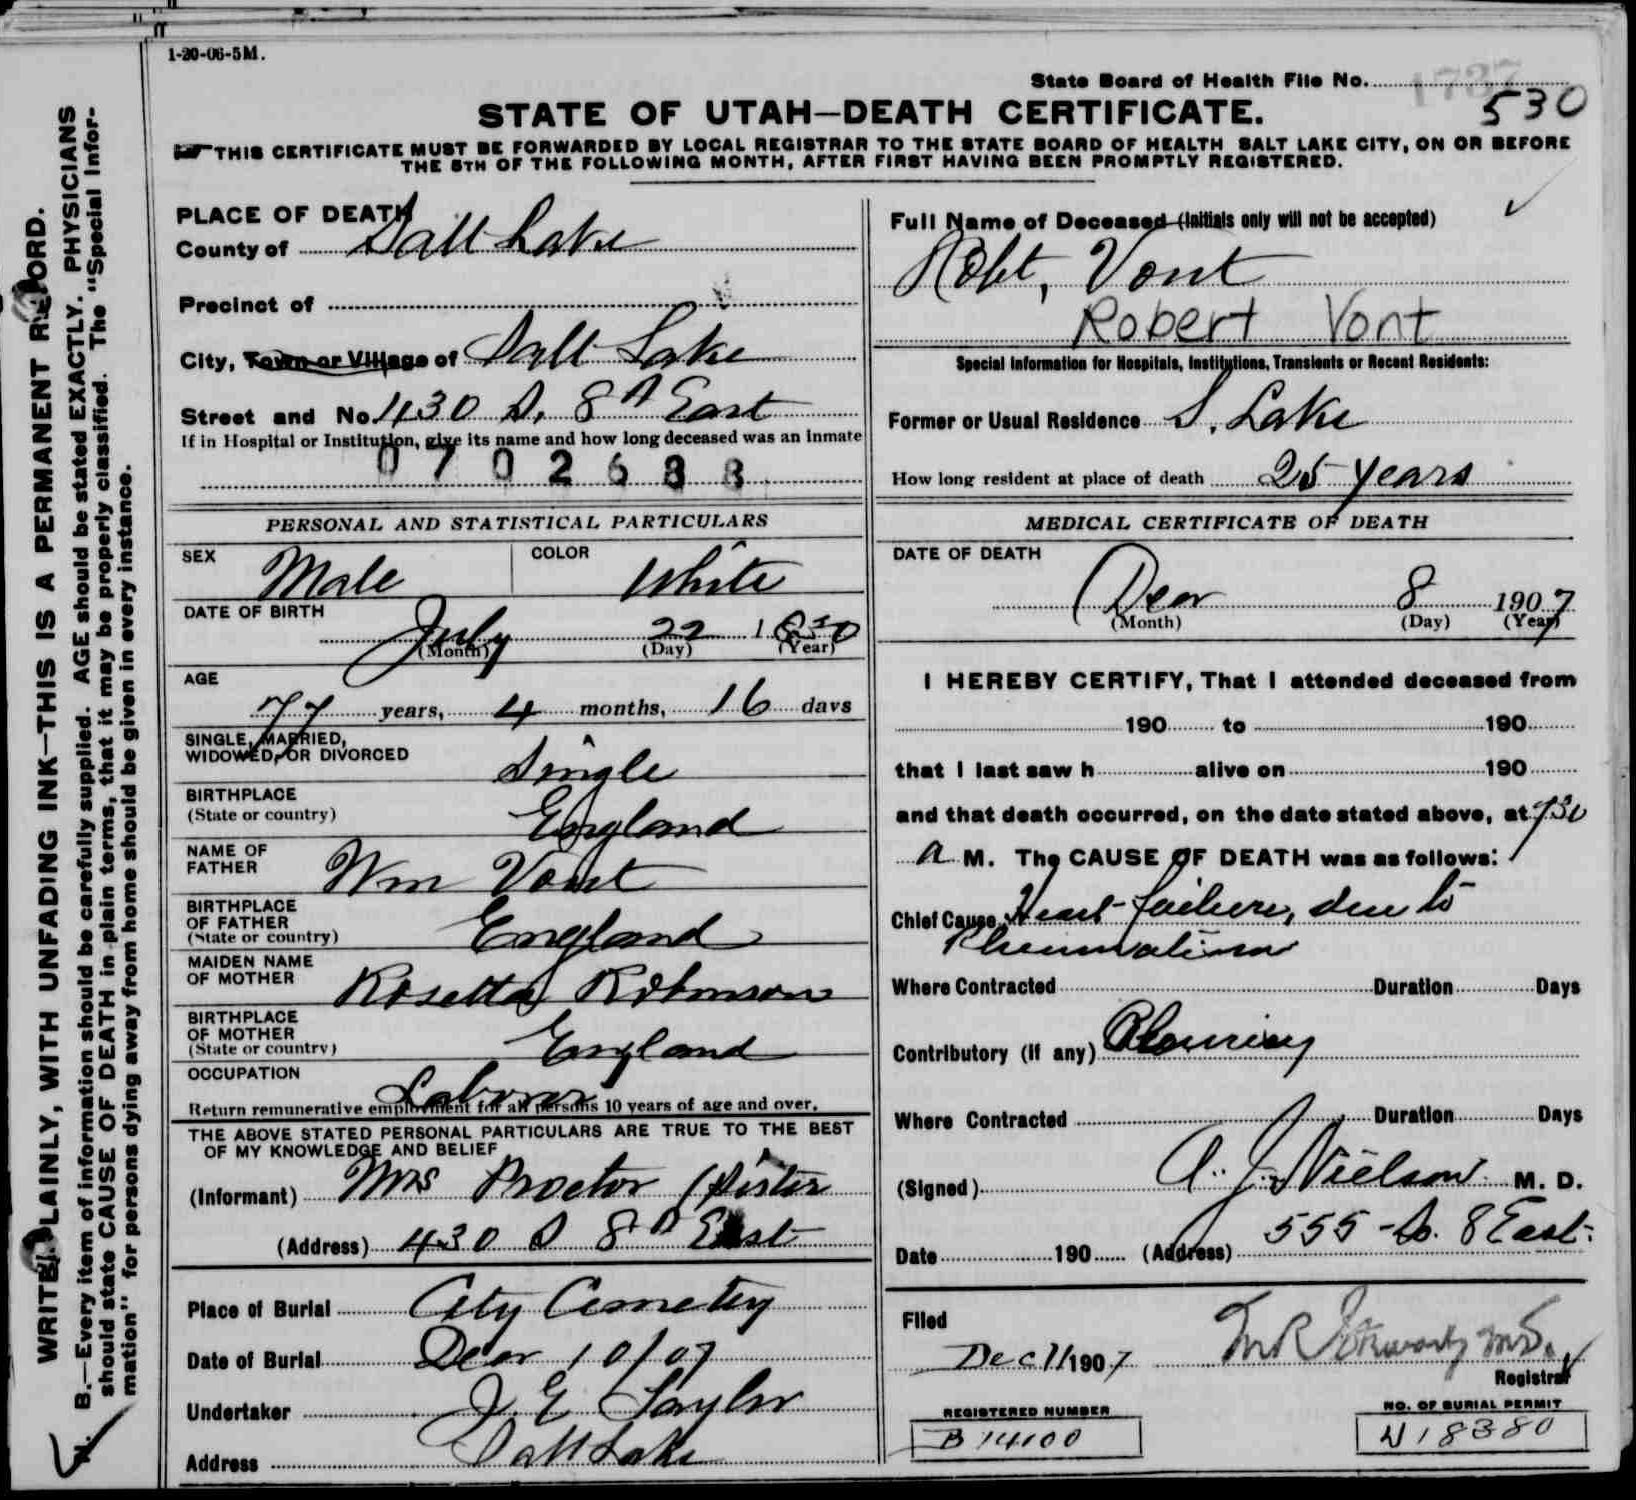 1-20-06-5M.
State Board of Health File No.
530
STATE OF UTAH—DEATH CERTIFICATE.
THIS CERTIFICATE MUST BE FORWARDED BY LOCAL REGISTRAR TO THE STATE BOARD OF HEALTH SALT LAKE CITY, ON OR BEFORE
THE 5TH OF THE FOLLOWING MONTH, AFTER FIRST HAVING BEEN PROMPTLY REGISTERED.
WRITE PLAINLY, WITH UNFADING INK—THIS IS A PERMANENT RECORD.
N. B.—Every item of information should be carefully supplied. AGE should be stated EXACTLY. PHYSICIANS
should state CAUSE OF DEATH in plain terms, that it may be properly classified. The "Special Infor-
mation" for persons dying away from home should be given in every instance.
PLACE OF DEATH
County of Salt Lake
Precinct of
City, Town or Village of Salt Lake
Street and No. 430 S. 8th East
If in Hospital or Institution, give its name and how long deceased was an inmate
0702688
PERSONAL AND STATISTICAL PARTICULARS
SEX Male COLOR White
DATE OF BIRTH
July 22 1830
(Month) (Day) (Year)
AGE
77 years, 4 months, 16 days
SINGLE, MARRIED,
WIDOWED, OR DIVORCED Single
BIRTHPLACE
(State or country) England
NAME OF
FATHER Wm Vont
BIRTHPLACE
OF FATHER
(State or country) England
MAIDEN NAME
OF MOTHER Rosetta Robinson
BIRTHPLACE
OF MOTHER
(State or country) England
OCCUPATION Laborer
Return remunerative employment for all persons 10 years of age and over.
THE ABOVE STATED PERSONAL PARTICULARS ARE TRUE TO THE BEST
OF MY KNOWLEDGE AND BELIEF
(Informant) Mrs Proctor (Sister
(Address) 430 S 8th East
Place of Burial City Cemetery
Date of Burial Decr 10/07
Undertaker J. E. Taylor
Address Salt Lake
Full Name of Deceased (Initials only will not be accepted)
Robt, Vont
Robert Vont
Special Information for Hospitals, Institutions, Transients or Recent Residents:
Former or Usual Residence S. Lake
How long resident at place of death 25 years
MEDICAL CERTIFICATE OF DEATH
DATE OF DEATH
Decr 8 1907
(Month) (Day) (Year)
I HEREBY CERTIFY, That I attended deceased from
190 to 190
that I last saw h alive on 190
and that death occurred, on the date stated above, at 730
a M. The CAUSE OF DEATH was as follows:
Chief Cause Heart failure, due to
Rheumatism
Where Contracted Duration Days
Contributory (if any) Pleurisy
Where Contracted Duration Days
(Signed) A. J. Nielson M. D.
Date 190 (Address) 555 - So. 8 East.
Filed
Dec 11 1907
Registrar
REGISTERED NUMBER
B 14100
NO. OF BURIAL PERMIT
N 18380